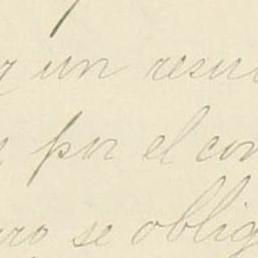 r un resu
por el con
ro se oblig